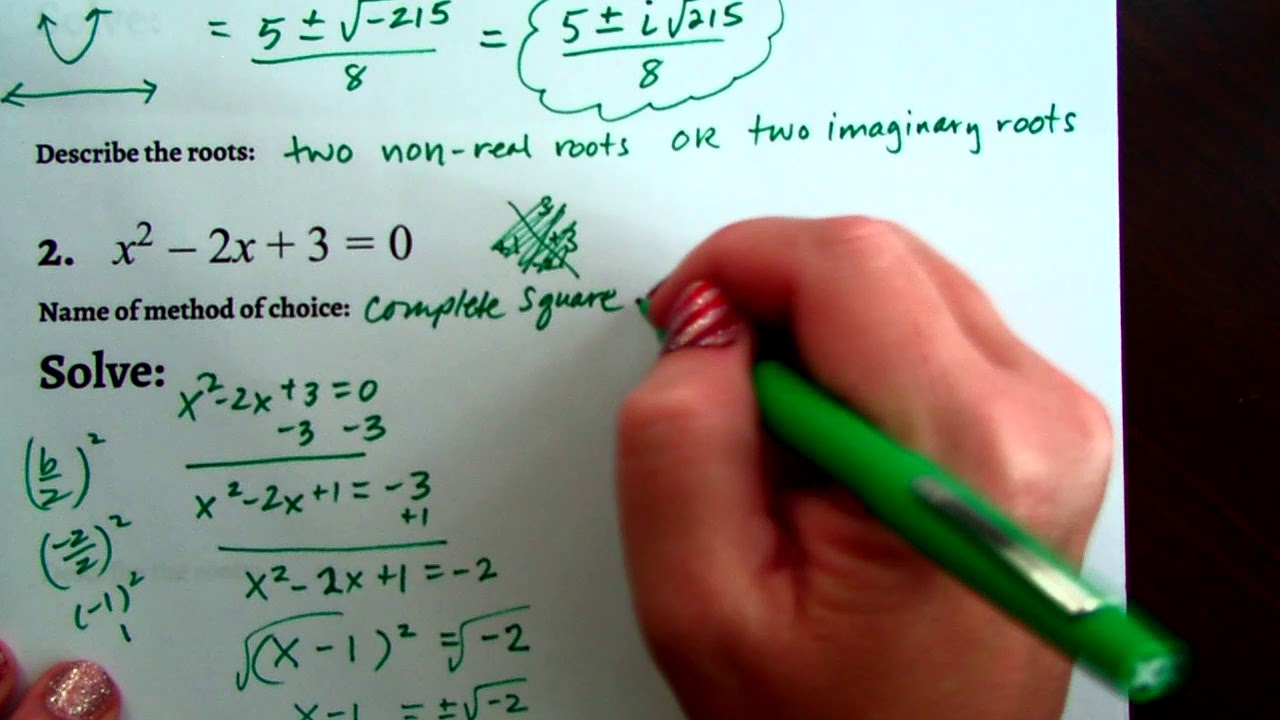 = 5 ± √-215 / 8 = 5 ± i√215 / 8
Describe the roots: two non-real roots or two imaginary roots
2. x² − 2x + 3 = 0
Name of method of choice: complete square
Solve:
x²-2x+3=0
-3 -3
(b/2)²
x²-2x+1 = -3
+1
(-2/2)²
x²-2x+1=-2
(-1)²
1
√(x-1)² = √-2
x-1 = ±√-2